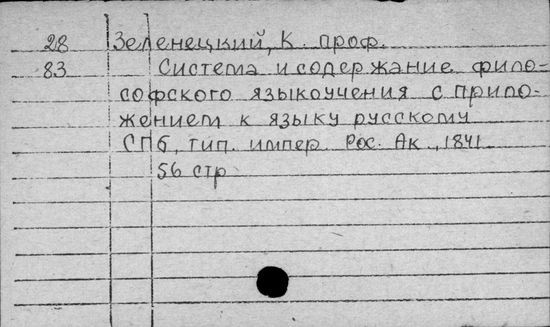 28 Зеленецкий, К. проф.
83 Система и содержание фило-
софского языкоучения с прило-
жением к языку русскому
СПб, тип. импер. Рос. Ак., 1841
56 стр